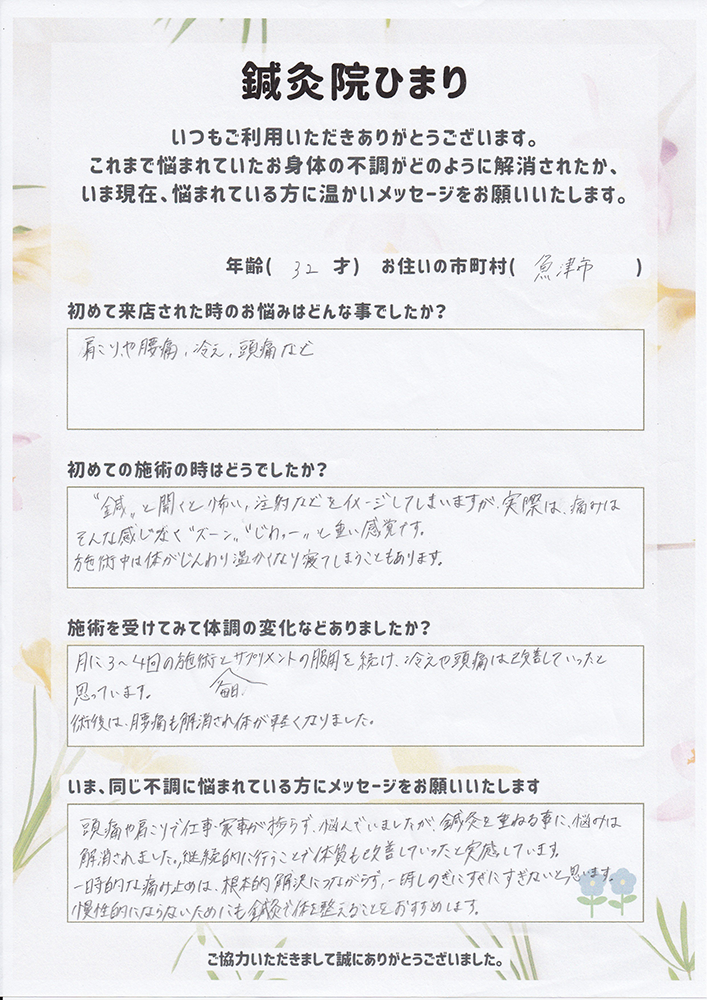 鍼灸院ひまり
いつもご利用いただきありがとうございます。
これまで悩まれていたお身体の不調がどのように解消されたか、
いま現在、悩まれている方に温かいメッセージをお願いいたします。
年齢( 32 才) お住いの市町村( 魚津市 )
初めて来店された時のお悩みはどんな事でしたか?
肩こりや腰痛、冷え、頭痛など
初めての施術の時はどうでしたか?
〝鍼〟と聞くと怖い、注射などをイメージしてしまいますが、実際は、痛みは
そんな感じなく〝ズーン〟〝じわぁー〟と重い感覚です。
施術中は体がじんわり温かくなり寝てしまうこともあります。
施術を受けてみて体調の変化などありましたか?
月に3〜4回の施術とサプリメントの服用を続け、冷えや頭痛は改善していったと
毎日、
思っています。
術後は、腰痛も解消され体が軽くなりました。
いま、同じ不調に悩まれている方にメッセージをお願いいたします
頭痛や肩こりで仕事・家事が捗らず、悩んでいましたが、鍼灸を重ねる事に、悩みは
解消されました。継続的に行うことで体質も改善していったと実感しています。
一時的な痛み止めは、根本的解決につながらず、一時しのぎにすぎにすぎないと思います。
慢性的にならないためにも鍼灸で体を整えることをおすすめします。
ご協力いただきまして誠にありがとうございました。